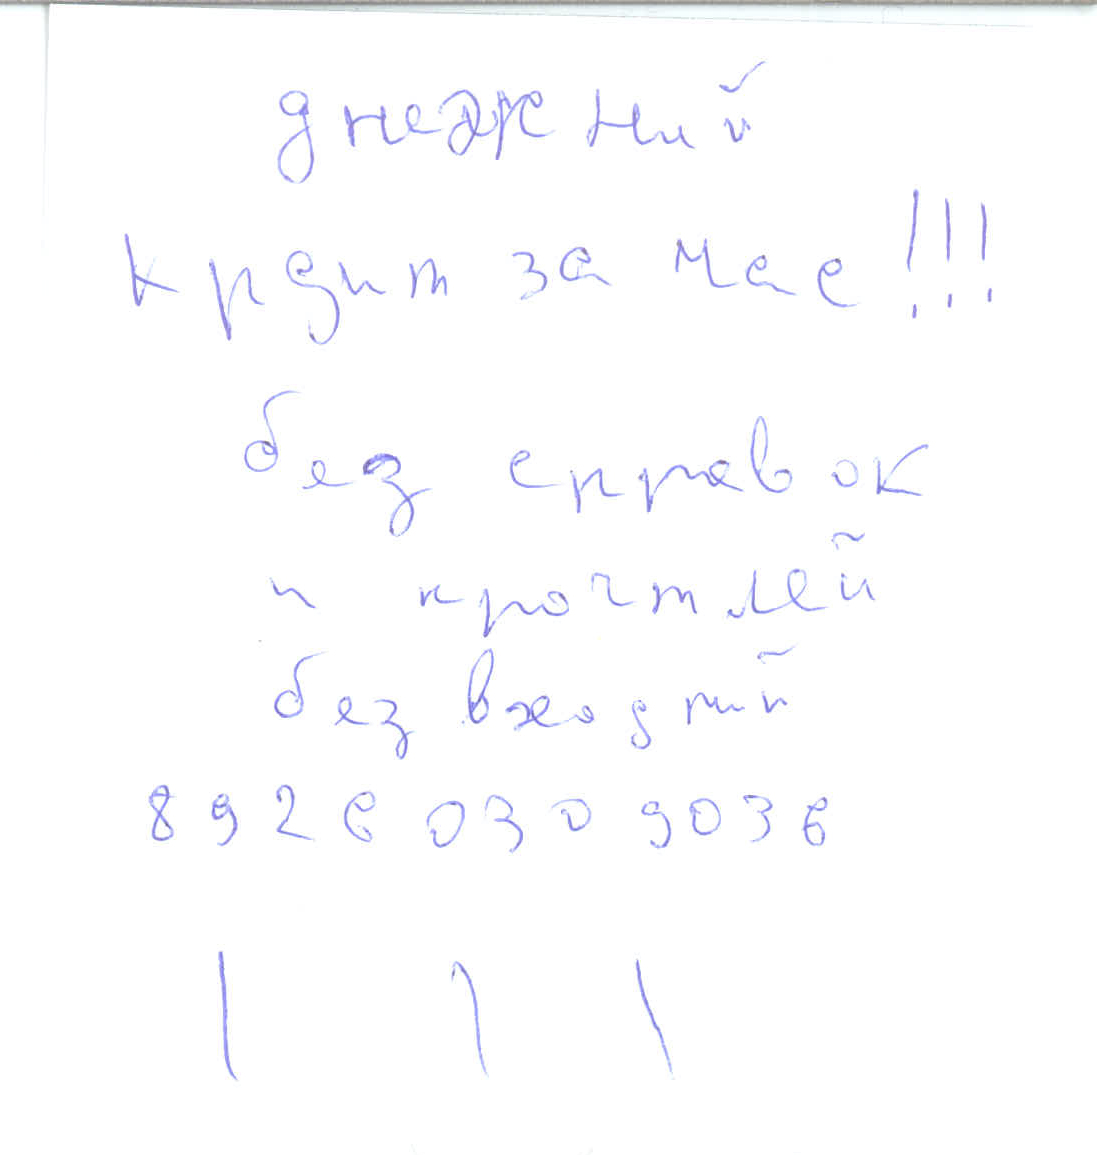 днежний
крдит за час!!!
без справок
и крочтлей
без входний
8926 030 9036